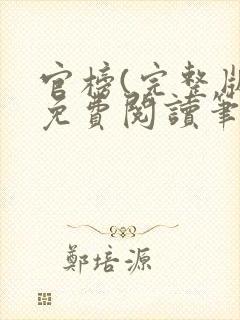 官榜(完整版
免費閱讀筆
鄭培源